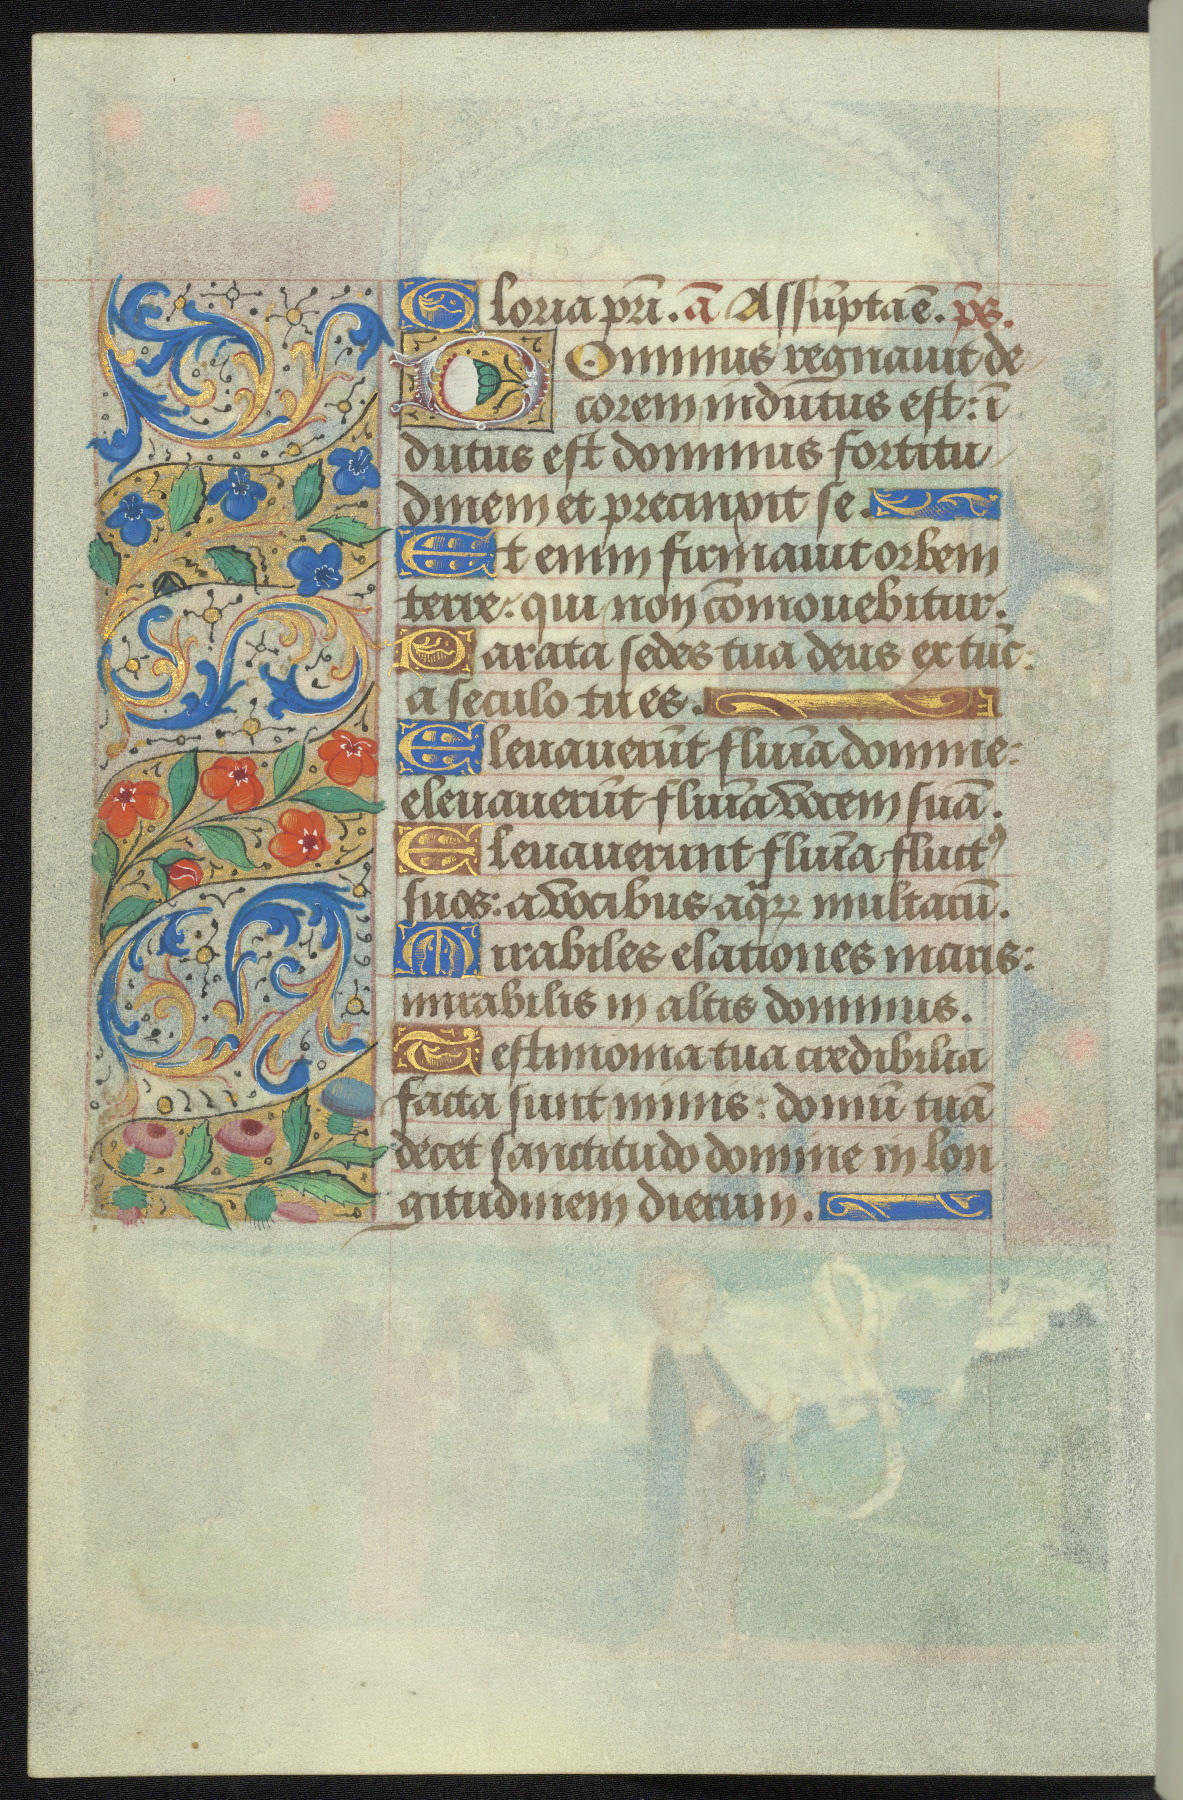 Gloria pri̅. a̅ Assu̅pta e̅. p̅s.
Dominus regnauit de
corem indu̅tus est: i̅
dutus est dominus fortitu
dinem et precinxit se.
Et enim firmauit orbem
terre: qui non co̅mouebitur.
Parata sedes tua deus ex tu̅c:
a seculo tu es.
Eleuaueru̅t flui̅a domine:
eleuaueru̅t flui̅a vocem sua̅.
Eleuauerunt flui̅a fluctꝰ
suos: a vocibus aq̅ꝝ multaru̅.
Mirabiles elationes maris:
mirabilis in altis dominus.
Testimonia tua credibilia
facta sunt nimis: domu̅ tua̅
decet sanctitudo domine in lon
gitudinem dierum.